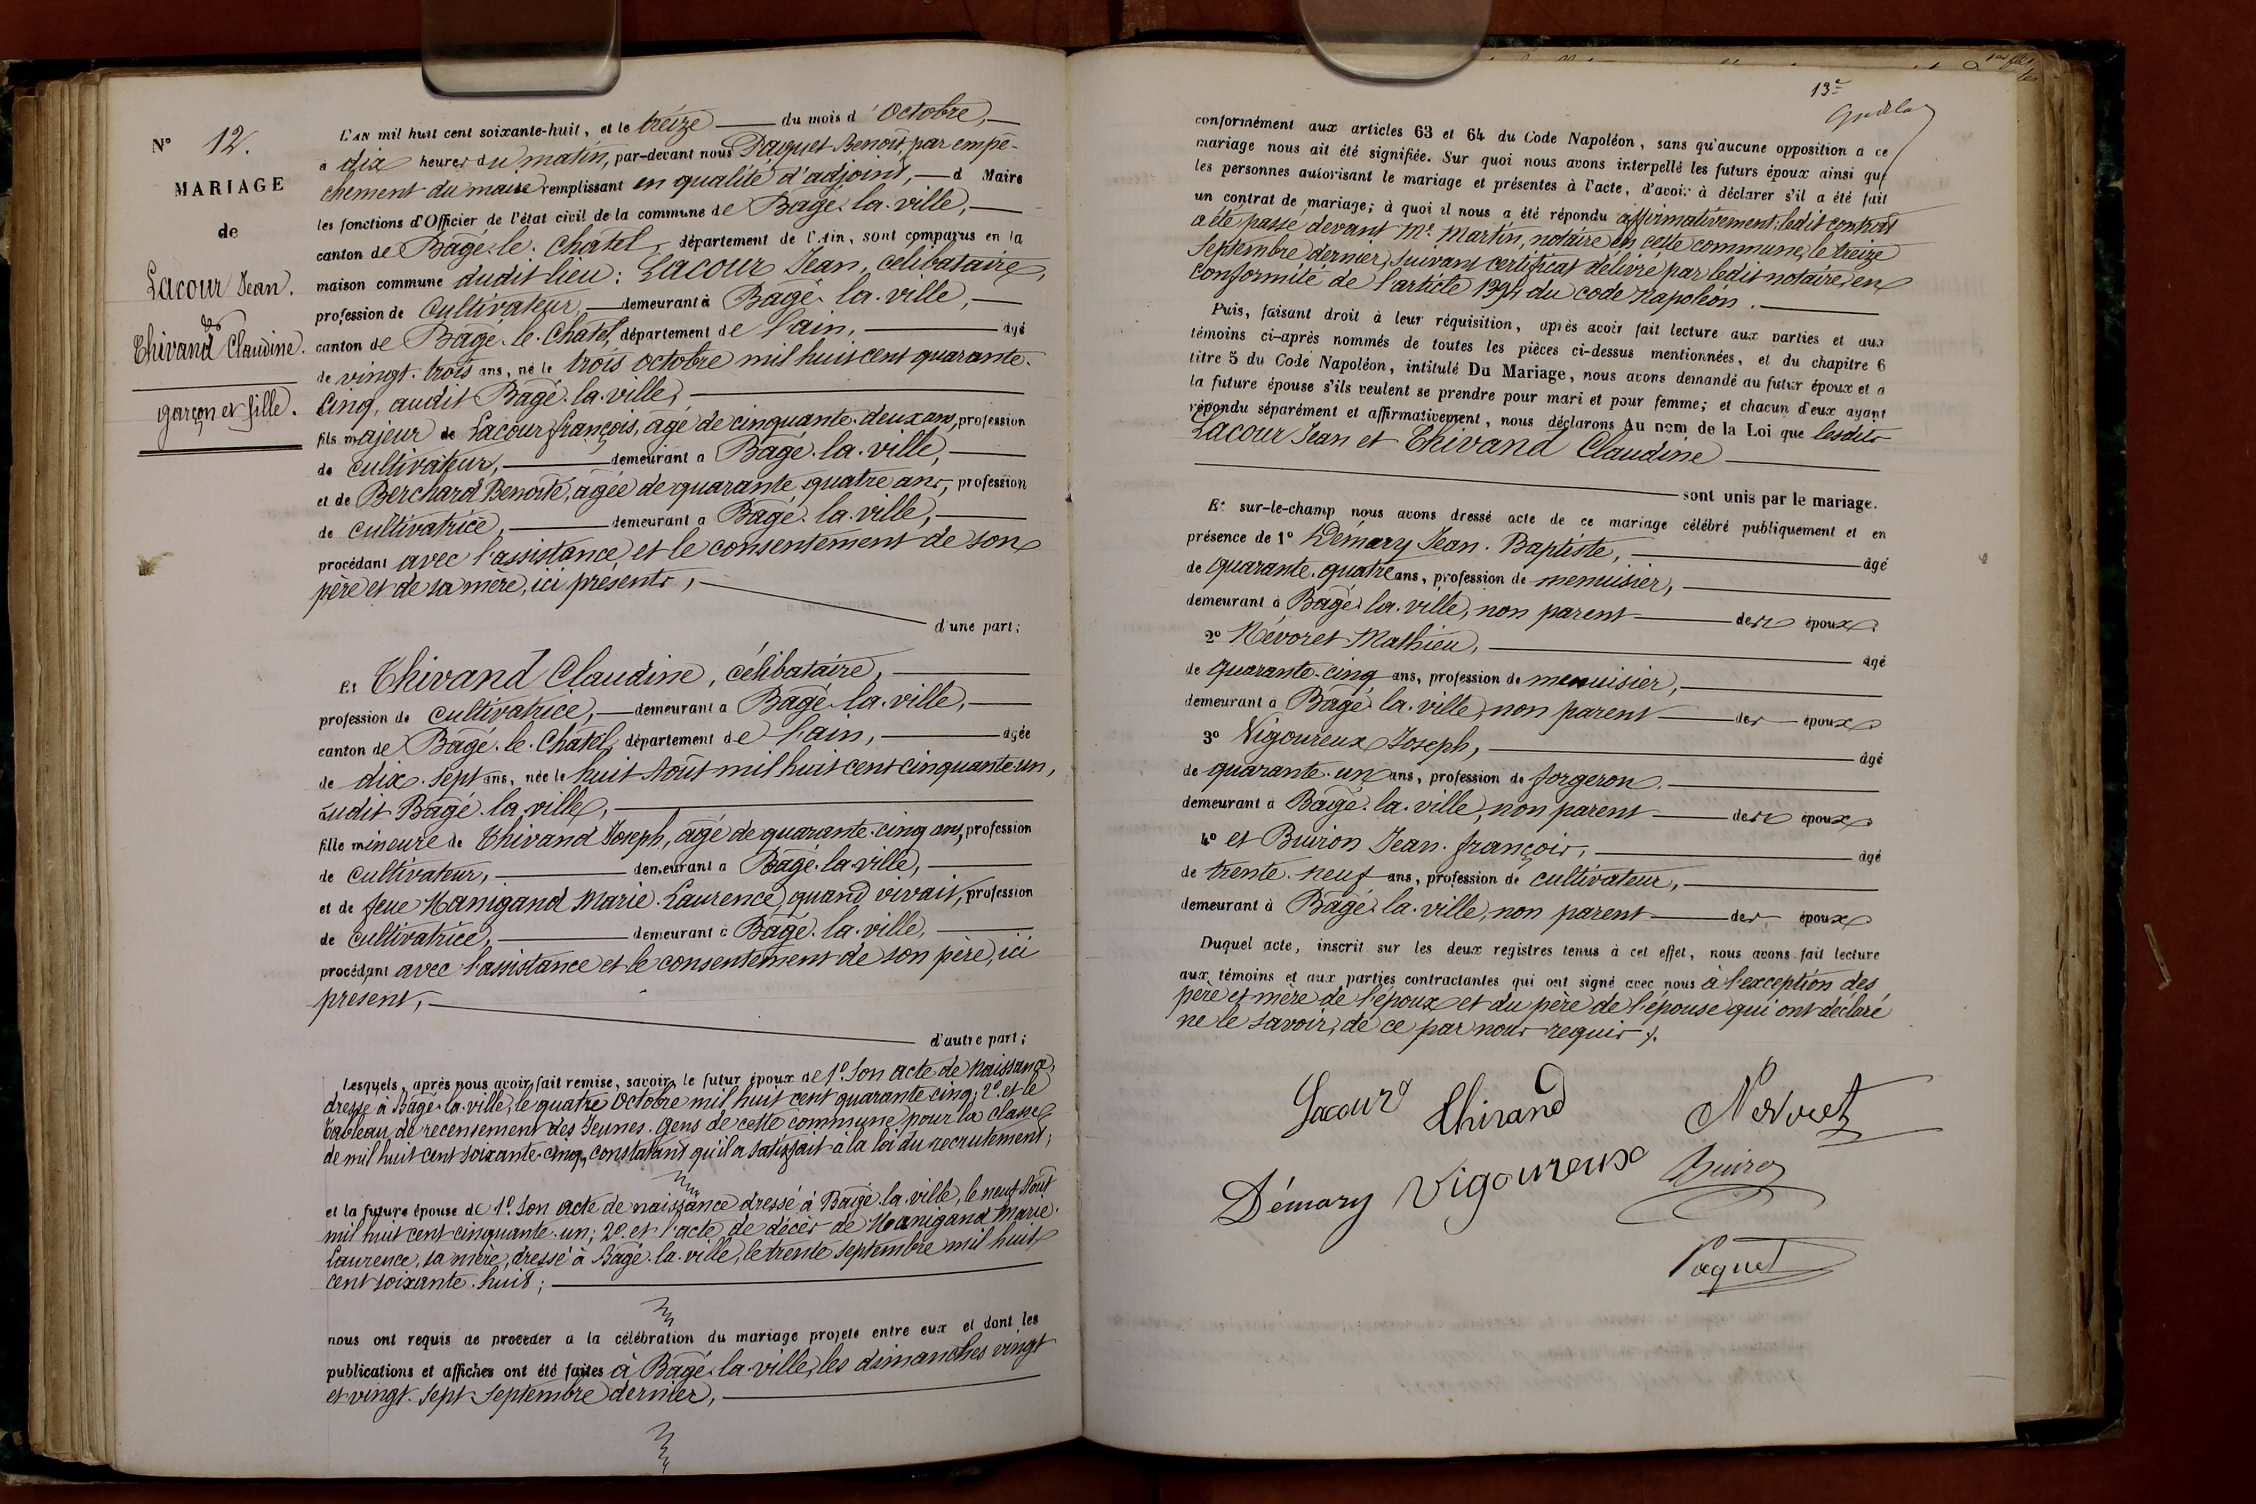 N° 12.
MARIAGE
de
Lacour Jean.
&
Thivand Claudine.
garçon et fille.
L'AN mil huit cent soixante-huit, et le treize du mois d'Octobre,
a dix heures du matin, par-devant nous Paquet Benoît, par empê-
chement du maire remplissant en qualité d'adjoint, d Maire
les fonctions d'Officier de l'état civil de la commune de Bâgé-la-ville,
canton de Bâgé-le-Châtel, département de l'Ain, sont comparus en la
maison commune dudit lieu : Lacour Jean, célibataire,
profession de cultivateur demeurant à Bâgé-la-ville,
canton de Bâgé-le-Châtel, département de l'ain, âgé
de vingt-trois ans, né le trois octobre mil huit cent quarante-
cinq, audit Bâgé-la-ville,
fils majeur de Lacour françois, âgé de cinquante-deux ans, profession
de cultivateur, demeurant a Bâgé-la-ville,
et de Berchard Benoîte, âgée de quarante quatre ans, profession
de cultivatrice, demeurant a Bâgé-la-ville,
procédant avec l'assistance et le consentement de son
père et de sa mère, ici présents,
d'une part ;
Et Thivand Claudine, célibataire,
profession de cultivatrice, demeurant a Bâgé-la-ville,
canton de Bâgé-le-Châtel, département de l'ain, âgée
de dix-sept ans, née le huit Août mil huit cent cinquante-un,
audit Bâgé-la-ville,
fille mineure de Thivand Joseph, âgé de quarante-cinq ans, profession
de cultivateur, demeurant a Bâgé-la-ville,
et de feue Manigand Marie-Laurence, quand vivait, profession
de cultivatrice, demeurant à Bâgé-la-ville,
procédant avec l'assistance et le consentement de son père, ici
présent,
d'autre part ;
Lesquels, après nous avoir fait remise, savoir, le futur époux de 1° Son acte de naissance,
dressé à Bâgé-la-ville, le quatre Octobre mil huit cent quarante cinq ; 2° et le
tableau de recensement des Jeunes-Gens de cette commune pour la classe
de mil huit cent soixante-cinq, constatant qu'il a satisfait à la loi du recrutement ;
et la future épouse de 1° Son acte de naissance dressé à Bâgé-la-ville, le neuf Août
mil huit cent cinquante-un ; 2° et l'acte de décès de Manigand Marie-
Laurence, sa mère, dressé à Bâgé-la-ville, le trente septembre mil huit
cent soixante-huit ;
nous ont requis de procéder a la célébration du mariage projeté entre eux et dont les
publications et affiches ont été faites à Bâgé-la-ville, les dimanches vingt
et vingt-sept Septembre dernier,
13e
conformément aux articles 63 et 64 du Code Napoléon, sans qu'aucune opposition a ce
mariage nous ait été signifiée. Sur quoi nous avons interpellé les futurs époux ainsi que
les personnes autorisant le mariage et présentes à l'acte, d'avoir à déclarer s'il a été fait
un contrat de mariage ; à quoi il nous a été répondu affirmativement, ledit contrat
a été passé devant Me Martin, notaire en cette commune, le treize
Septembre dernier, suivant certificat délivré par ledit notaire, en
conformité de l'article 1394 du code Napoléon.
Puis, faisant droit à leur réquisition, après avoir fait lecture aux parties et aux
témoins ci-après nommés de toutes les pièces ci-dessus mentionnées, et du chapitre 6
titre 5 du Code Napoléon, intitulé Du Mariage, nous avons demandé au futur époux et a
la future épouse s'ils veulent se prendre pour mari et pour femme ; et chacun d'eux ayant
répondu séparément et affirmativement, nous déclarons Au nom de la Loi que lesdits
Lacour Jean et Thivand Claudine
sont unis par le mariage.
Et sur-le-champ nous avons dressé acte de ce mariage célébré publiquement et en
présence de 1° Démary Jean-Baptiste, âgé
de quarante-quatre ans, profession de menuisier,
demeurant à Bâgé-la-ville, non parent des époux
2° Névoret Mathieu, âgé
de quarante-cinq ans, profession de menuisier,
demeurant a Bâgé-la-ville, non parent des époux
3° Vigoureux Joseph, âgé
de quarante-un ans, profession de forgeron.
demeurant à Bâgé-la-ville, non parent des époux
4° et Buiron Jean-françois, âgé
de trente-neuf ans, profession de cultivateur,
demeurant à Bâgé-la-ville, non parent des époux
Duquel acte, inscrit sur les deux registres tenus à cet effet, nous avons fait lecture
aux témoins et aux parties contractantes qui ont signé avec nous à l'exception des
père et mère de l'époux et du père de l'épouse qui ont déclaré
ne le savoir, de ce par nous requis.
Lacour Thivand Nevoret
Démary Vigoureux Buiron
Paquet